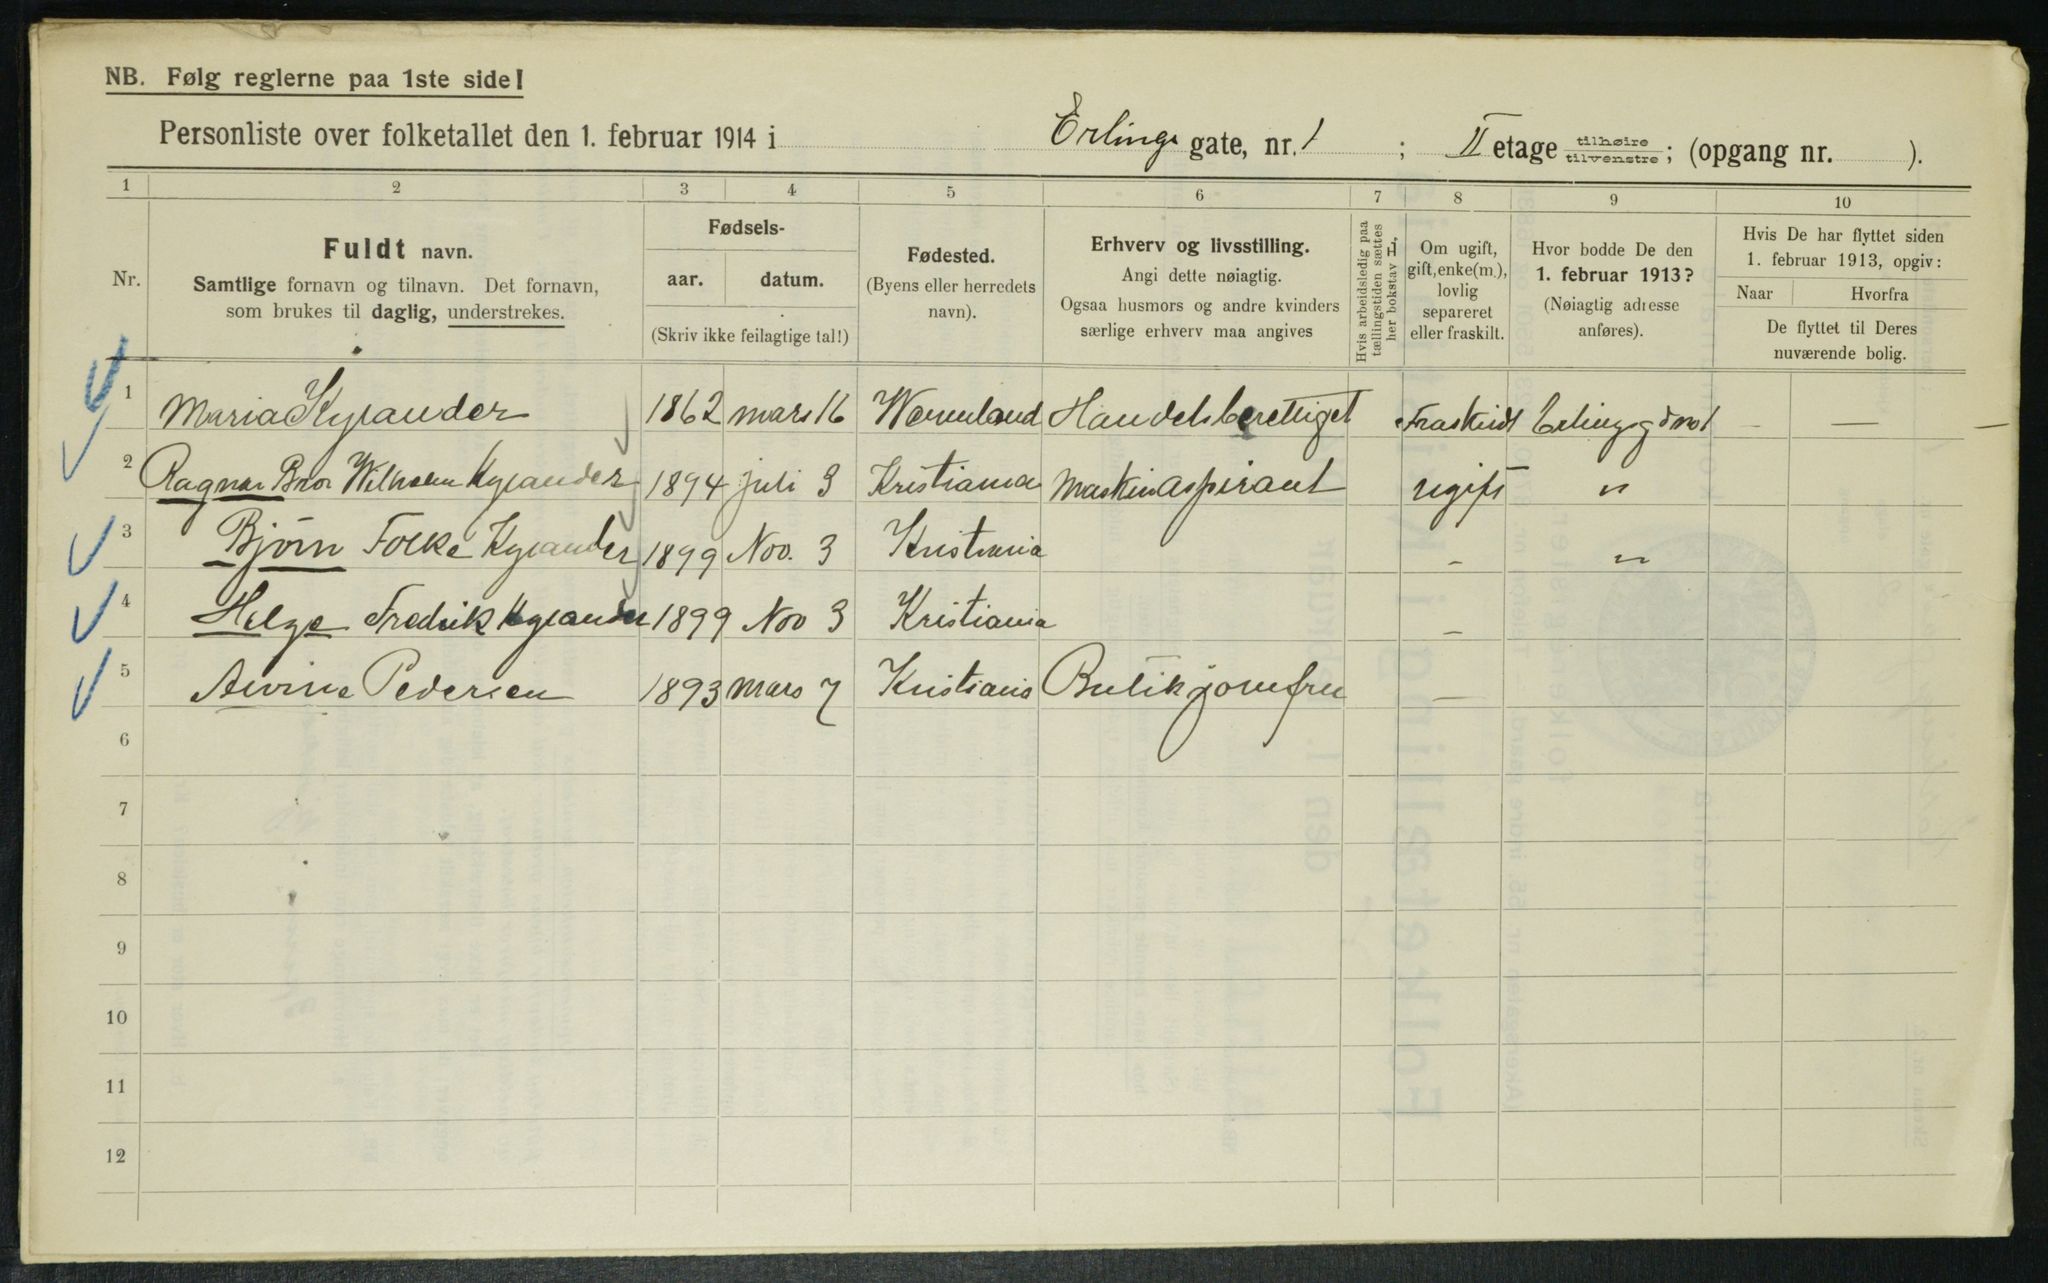 NB. Følg reglerne paa 1ste side!
Personliste over folketallet den 1. februar 1914 i Erlings gate, nr. 1 ; II etage tilhøire tilvenstre ; (opgang nr. ).
1 2 3 4 5 6 7 8 9 10
Nr.
Fuldt navn.
Samtlige fornavn og tilnavn. Det fornavn,
som brukes til daglig, understrekes.
Fødsels-
aar. datum.
(Skriv ikke feilagtige tal!)
Fødested.
(Byens eller herredets
navn).
Erhverv og livsstilling.
Angi dette nøiagtig.
Ogsaa husmors og andre kvinders
særlige erhverv maa angives
Hvis arbeidsledig paa
tællingstiden sættes
her bokstav H.
Om ugift,
gift, enke(m.),
lovlig
separeret
eller fraskilt.
Hvor bodde De den
1. februar 1913?
(Nøiagtig adresse
anføres).
Hvis De har flyttet siden
1. februar 1913, opgiv:
Naar Hvorfra
De flyttet til Deres
nuværende bolig.
1 Maria Kylander 1862 mars 16 Wermland Handelsberettiget Fraskildt Erlingsgd no 1 — — —
2 Ragnar Bror Wilhelm Kylander 1894 juli 3 Kristiania Maskinaspirant ugift "
3 Bjørn Folke Kylander 1899 Nov. 3 Kristiania - "
4 Helge Fredrik Kylander 1899 Nov 3 Kristiania -
5 Alvine Pedersen 1893 mars 7 Kristiania Butikjomfru —
6
7
8
9
10
11
12